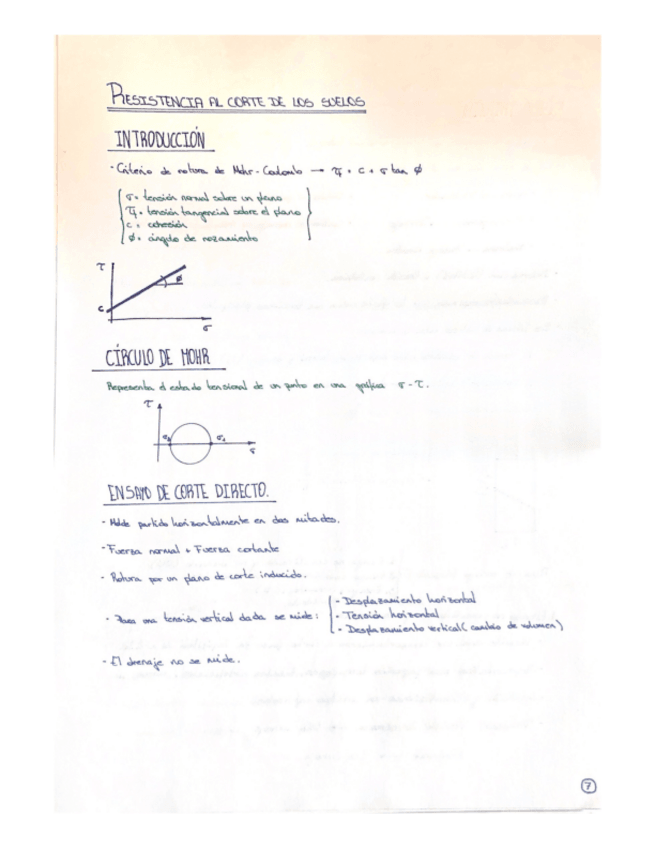 RESISTENCIA AL CORTE DE LOS SUELOS
INTRODUCCIÓN
· Criterio de rotura de Mohr-Coulomb → τf = c + σ tan ø
σ = tensión normal sobre un plano
τf = tensión tangencial sobre el plano
c = cohesión
ø = ángulo de rozamiento
τ
ø
c
σ
CÍRCULO DE MOHR
Representa el estado tensional de un punto en una gráfica σ - τ.
τ
σ3 σ1
σ
ENSAYO DE CORTE DIRECTO.
· Molde partido horizontalmente en dos mitades.
· Fuerza normal + Fuerza cortante
· Rotura por un plano de corte inducido.
· Para una tensión vertical dada se mide:
- Desplazamiento horizontal
- Tensión horizontal
- Desplazamiento vertical (cambio de volumen)
· El drenaje no se mide.
7